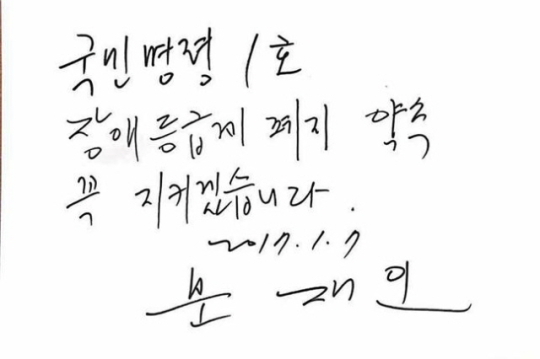 국민명령 1호
장애등급제 폐지 약속
꼭 지키겠습니다.
2017.1.7
문재인